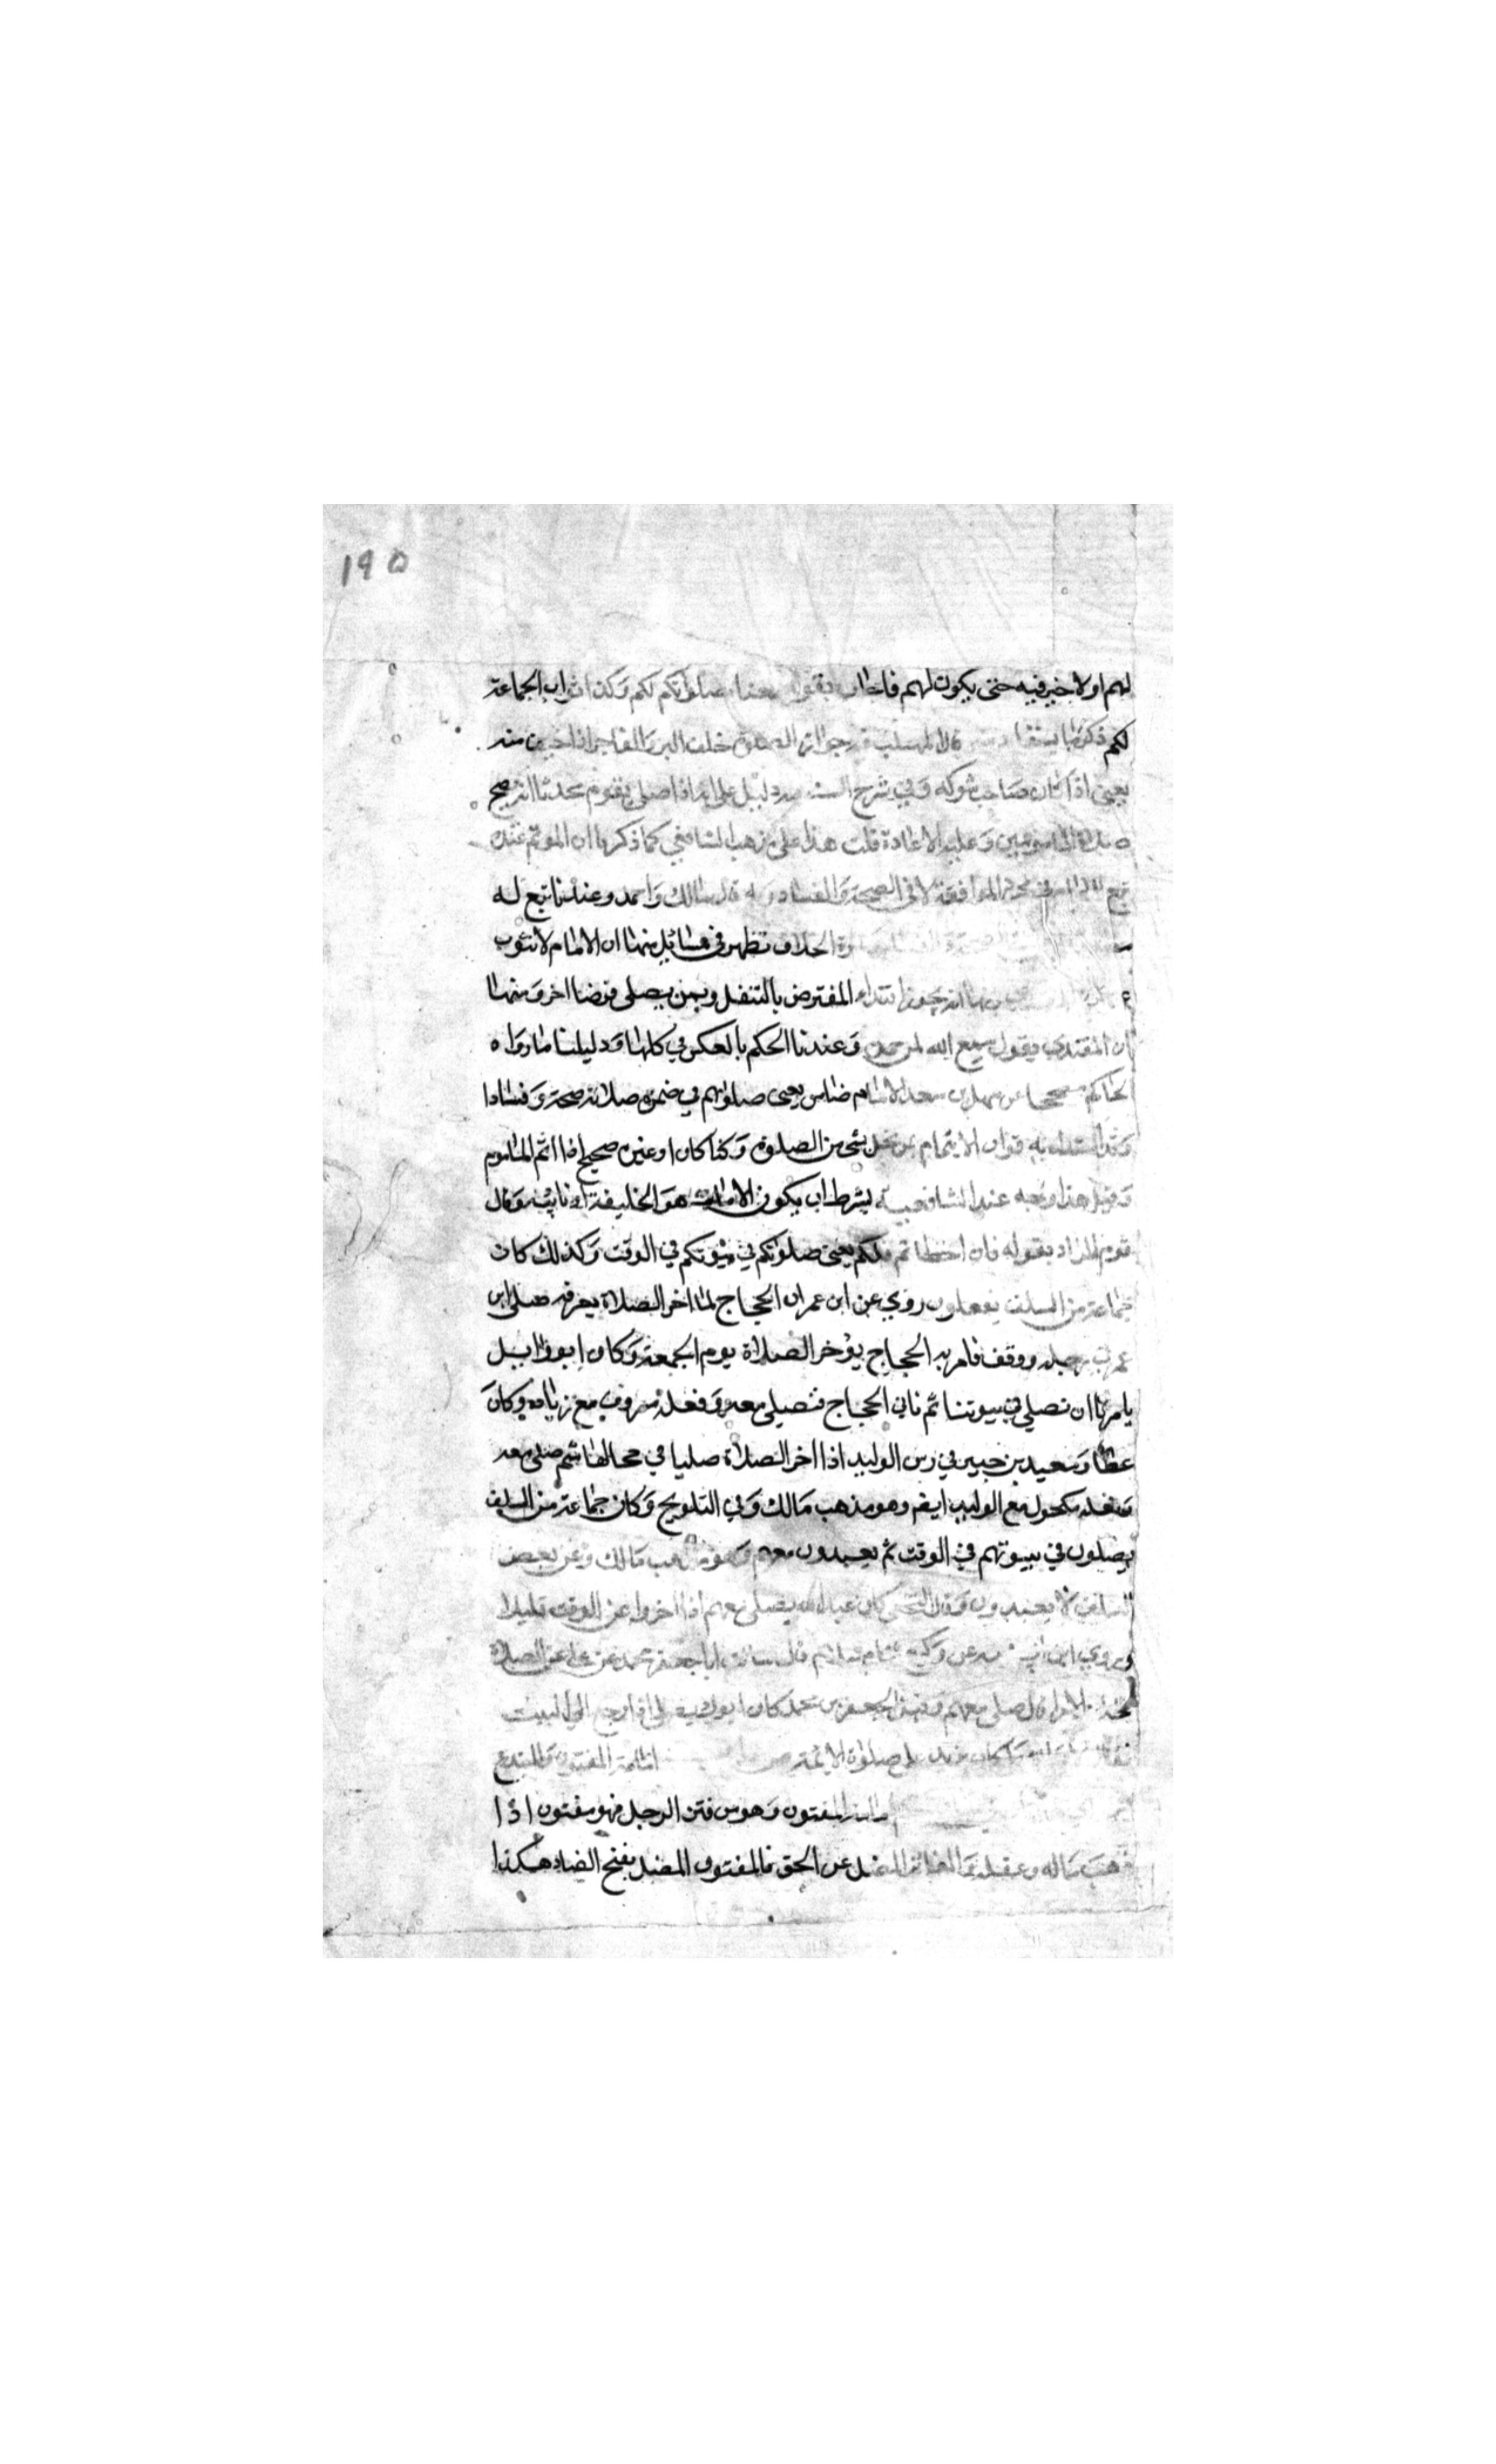 ١٩٥
لهم اولا خير فيه حتى يكون لهم فاجاب بقوله معناه صلوتكم لكم وكذا ثواب الجماعة
لكم ذكر ما يستفاد منه قال المهلب فيه جواز الصلوة خلف البر والفاجر اذا خيف منه
يعني اذا كان صاحب شوكه وفي شرح السنة فيه دليل على انه اذا صلى بقوم محدثا انه يصح
صلاة المامومين وعليه الاعادة قلت هذا على مذهب الشافعي كما ذكرنا ان الموتم عنده
تبع للامام في مجرد الموافقة لا في الصحة والفساد وبه قال مالك واحمد وعندنا تبع له
الصحة والفساد الخلاف تظهر في مسائل منها ان الامام لا تنوب
منها انه يجوز اقتداء المفترض بالمتنفل وبمن يصلي فرضا اخر ومنها
ان المقتدي يقول سمع الله لمن حمده وعندنا الحكم بالعكس في كلها ودليلنا ما رواه
الحاكم مصححا عن سهل بن سعد الامام ضامن يعني صلوتهم في ضمن صلاته صحة وفسادا
وقد استدل به قوم ان الايتمام بمن يخل بشي من الصلوة ركنا كان او غيره صحيح اذا اتم الماموم
وقيل هذا وجه عند الشافعية بشرط ان يكون الامام هو الخليفة او نائبه وقال
قوم المراد بقوله فان اخطأتم فلكم يعني صلوتكم في بيوتكم في الوقت وكذلك كان
جماعة من السلف يفعلون روي عن ابن عمر ان الحجاج لما اخر الصلاة بعرفة صلى ابن
عمر في رحله ووقف فامر به الحجاج يؤخر الصلاة يوم الجمعة وكان ابو وايل
يامرنا ان نصلي في بيوتنا ثم ناتي الحجاج فنصلي معه وفعله مسروق مع زياد وكان
عطا وسعيد بن جبير في زمن الوليد اذا اخر الصلاة صليا في محالهما ثم صلى معه
وفعله مكحول مع الوليد ايضم وهو مذهب مالك وفي التلويح وكان جماعة من السلف
يصلون في بيوتهم في الوقت ثم يعيدون معهم وهو مذهب مالك وعن بعض
السلف لا يعيدون وقال النخعي كان عبد الله يصلي معهم اذا اخروا عن الوقت قليلا
وروي ابن ابي عن وكيع قال سالت ابا جعفر محمد بن علي عن الصلاة
خلف الامراء قال صلى معهم وقيل لجعفر بن محمد كان ابوك يصلي اذا رجع الى البيت
فقال ما كان يزيد على صلاة الائمة امامة المفتون والمبتدع
المفتون وهو من فتن الرجل فهو مفتون اذا
ذهب ماله وعقله والفاتن المضل عن الحق فالمفتون المضل بفتح الضاد هكذا